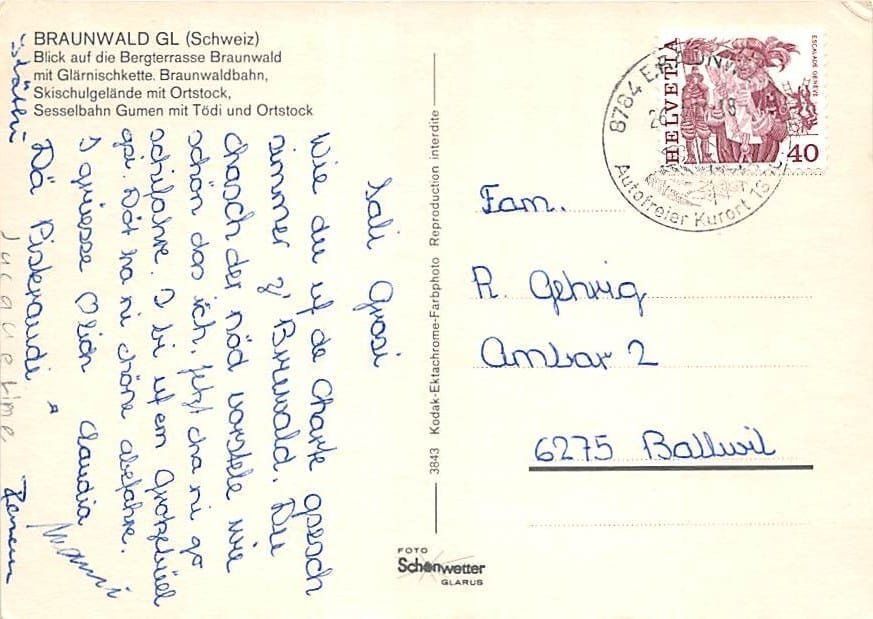 BRAUNWALD GL (Schweiz)
Blick auf die Bergterrasse Braunwald
mit Glärnischkette. Braunwaldbahn,
Skischulgelände mit Ortstock,
Sesselbahn Gumen mit Tödi und Ortstock
Sali Grosi
Wie du uf de Charte gsesch
simmer z' Bruwald. Du
chasch der nöd vorstele wie
schön das isch. Jetzt cha ni go
schifahre. I bi uf em Grotzebüel
gsi. Döt ha ni chöne abefahre.
I grüesse Dich Claudia
Dä
3843 Kodak-Ektachrome-Farbphoto Reproduction interdite
FOTO
Schönwetter
GLARUS
HELVETIA
ESCALADE GENÈVE
40
8784 BRAUNW
Autofreier Kurort 13
Fam.
R. Gehrig
Ambar 2
6275 Ballwil